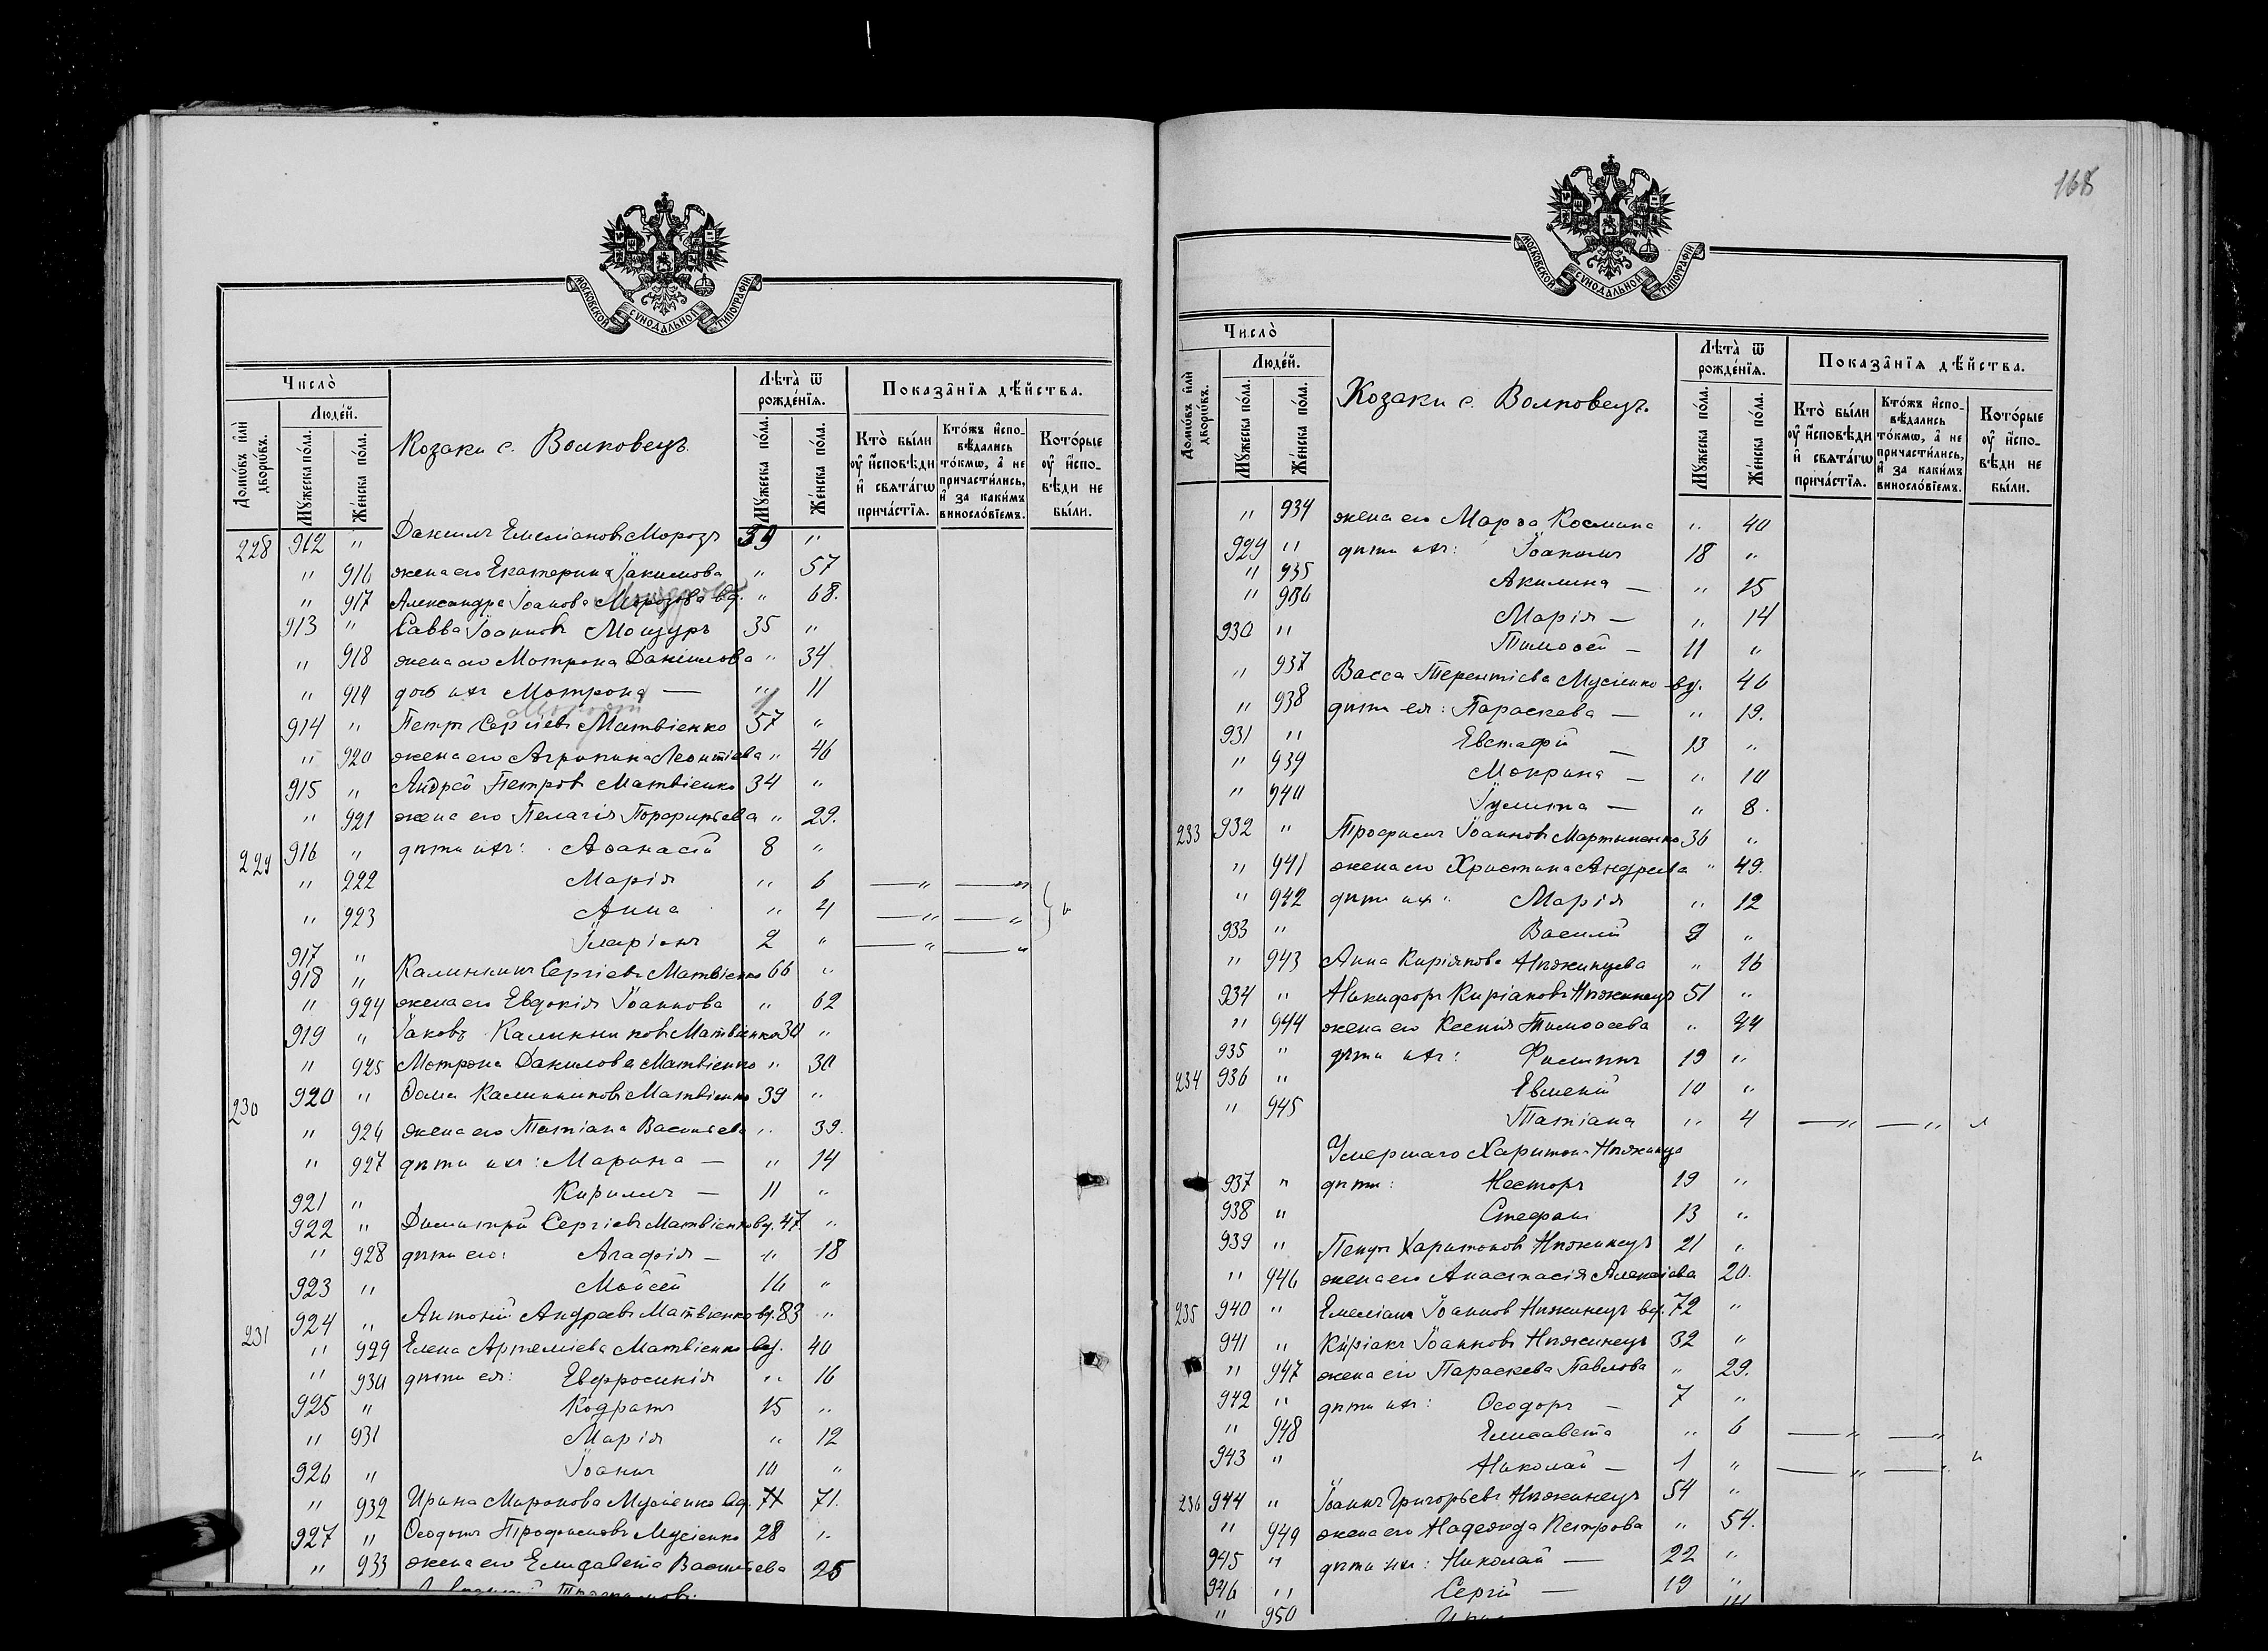 МОСКОВСКОЙ СѴНОДАЛЬНОЙ ТИПОГРАФІИ
Число̀
Люде́й.
Домѡ́въ и҆лѝ дворѡ́въ.
Мꙋ́жеска по́ла.
Же́нска по́ла.
Козаки с. Волковецъ.
Лѣта̀ ѿ рожде́нїѧ.
Мꙋ́жеска по́ла.
Же́нска по́ла.
Показа̑нїѧ дѣ́йства.
Кто̀ бы́ли ᲂу҆ и҆́сповѣди и҆ свѧта́гѡ прича́стїѧ.
Кто́жъ и҆спо-вѣ́дались то́кмѡ, а҆ не причасти́лись, и҆ за каки́мъ винослов́їемъ.
Кото́рые ᲂу҆ и҆́спо-вѣди не бы́ли.
228 912 " Данiилъ Емелiановъ Морозъ 59 "
" 916 жена его Екатерина Iакимова " 57
" 917 Александра Iоанова Морозова вд. " 68.
913 " Савва Iоанновъ Мощуръ 35 "
" 918 жена его Мотрона Данiилова " 34
" 919 дочь ихъ Мотрона — " 11
914 " Петръ Сергiевъ Матвiенко 57 "
" 920 жена его Агрипина Леонтiева " 46
915 " Андрей Петровъ Матвiенко 34 "
" 921 жена его Пелагiя Порфирьева " 29.
229 916 " дѣти ихъ: Аѳанасiй 8 "
" 922 Марiя " 6 —" —"
" 923 Анна " 4 —" —"
917 " Iларiонъ 2 " —" —"
918 " Калинникъ Сергiевъ Матвiенко 66 "
" 924 жена его Евдокiя Iоаннова " 62
919 " Iаковъ Калинниковъ Матвiенко 30 "
" 925 Мотрона Данилова Матвiенко " 30
230 920 " Ѳома Калинниковъ Матвiенко 39 "
" 926 жена его Татiана Васильева " 39.
" 927 дѣти ихъ: Марина — " 14
921 " Кирилъ — 11 "
922 " Димитрiй Сергiевъ Матвiенко вд. 47 "
" 928 дѣти его: Агафiя — " 18
923 " Моисей 16 "
231 924 " Антонiй Андреевъ Матвiенко вд. 83 "
" 929 Елена Артемiева Матвiенко вд. 40
" 930 дѣти ея: Евфросинiя " 16
925 " Кодратъ 15 "
" 931 Марiя " 12
926 " Iоанъ 10 "
" 932 Ирина Миронова Мусiенко вд. 71.
927 " Ѳеодотъ Трофимовъ Мусiенко 28 "
" 933 жена его Елисавета Васильева 25
168
МОСКОВСКОЙ СѴНОДАЛЬНОЙ ТИПОГРАФІИ
Число̀
Люде́й.
Домѡ́въ и҆лѝ дворѡ́въ.
Мꙋ́жеска по́ла.
Же́нска по́ла.
Козаки с. Волковецъ.
Лѣта̀ ѿ рожде́нїѧ.
Мꙋ́жеска по́ла.
Же́нска по́ла.
Показа̑нїѧ дѣ́йства.
Кто̀ бы́ли ᲂу҆ и҆́сповѣди и҆ свѧта́гѡ прича́стїѧ.
Кто́жъ и҆спо-вѣ́дались то́кмѡ, а҆ не причасти́лись, и҆ за каки́мъ винослов́їемъ.
Кото́рые ᲂу҆ и҆́спо-вѣди не бы́ли.
" 934 жена его Марѳа Космина " 40
929 " дѣти ихъ: Iоакимъ 18 "
" 935 Акилина — " 15
" 936 Марiя — " 14
930 " Тимоѳей — 11 "
" 937 Васса Терентiева Мусiенко вд. 46
" 938 дѣти ея: Параскева — " 19.
931 " Евстафiй — 13 "
" 939 Мокрина — " 10
" 940 Iулита — " 8.
233 932 " Трофимъ Iоанновъ Мартыненко 36 "
" 941 жена его Христина Андреева " 49.
" 942 дѣти ихъ: Марiя " 12
933 " Василiй 9 "
" 943 Анна Кирiякова Нѣжинцева " 16
934 " Никифоръ Кирiаковъ Нѣжинецъ 51 "
" 944 жена его Ксенiя Тимоѳеева " 44
935 " дѣти ихъ: Филиппъ 19 "
234 936 " Евменiй 10 "
" 945 Татiана " 4 —" —"
Умершаго Харитона Нѣжинца
937 " дѣти: Несторъ 19 "
938 " Стефанъ 13 "
939 " Харитоновъ Нѣжинецъ 21 "
" 946 жена его Анастасiя Алексiева 20.
235 940 " Емелiанъ Iоанновъ Нѣжинецъ вд. 72 "
941 " Кирiакъ Iоанновъ Нѣжинецъ 32 "
" 947 жена его Параскева Павлова " 29.
942 " дѣти ихъ: Ѳеодоръ — 7 "
" 948 Елисавета " 6 —" —"
943 " Николай — 1 " —" —"
236 944 " Iоаннъ Григорьевъ Нѣжинецъ 54 "
" 949 жена его Надежда Петрова " 54.
945 " дѣти ихъ: Николай — 22 "
946 " Сергiй — 19 "
" 950